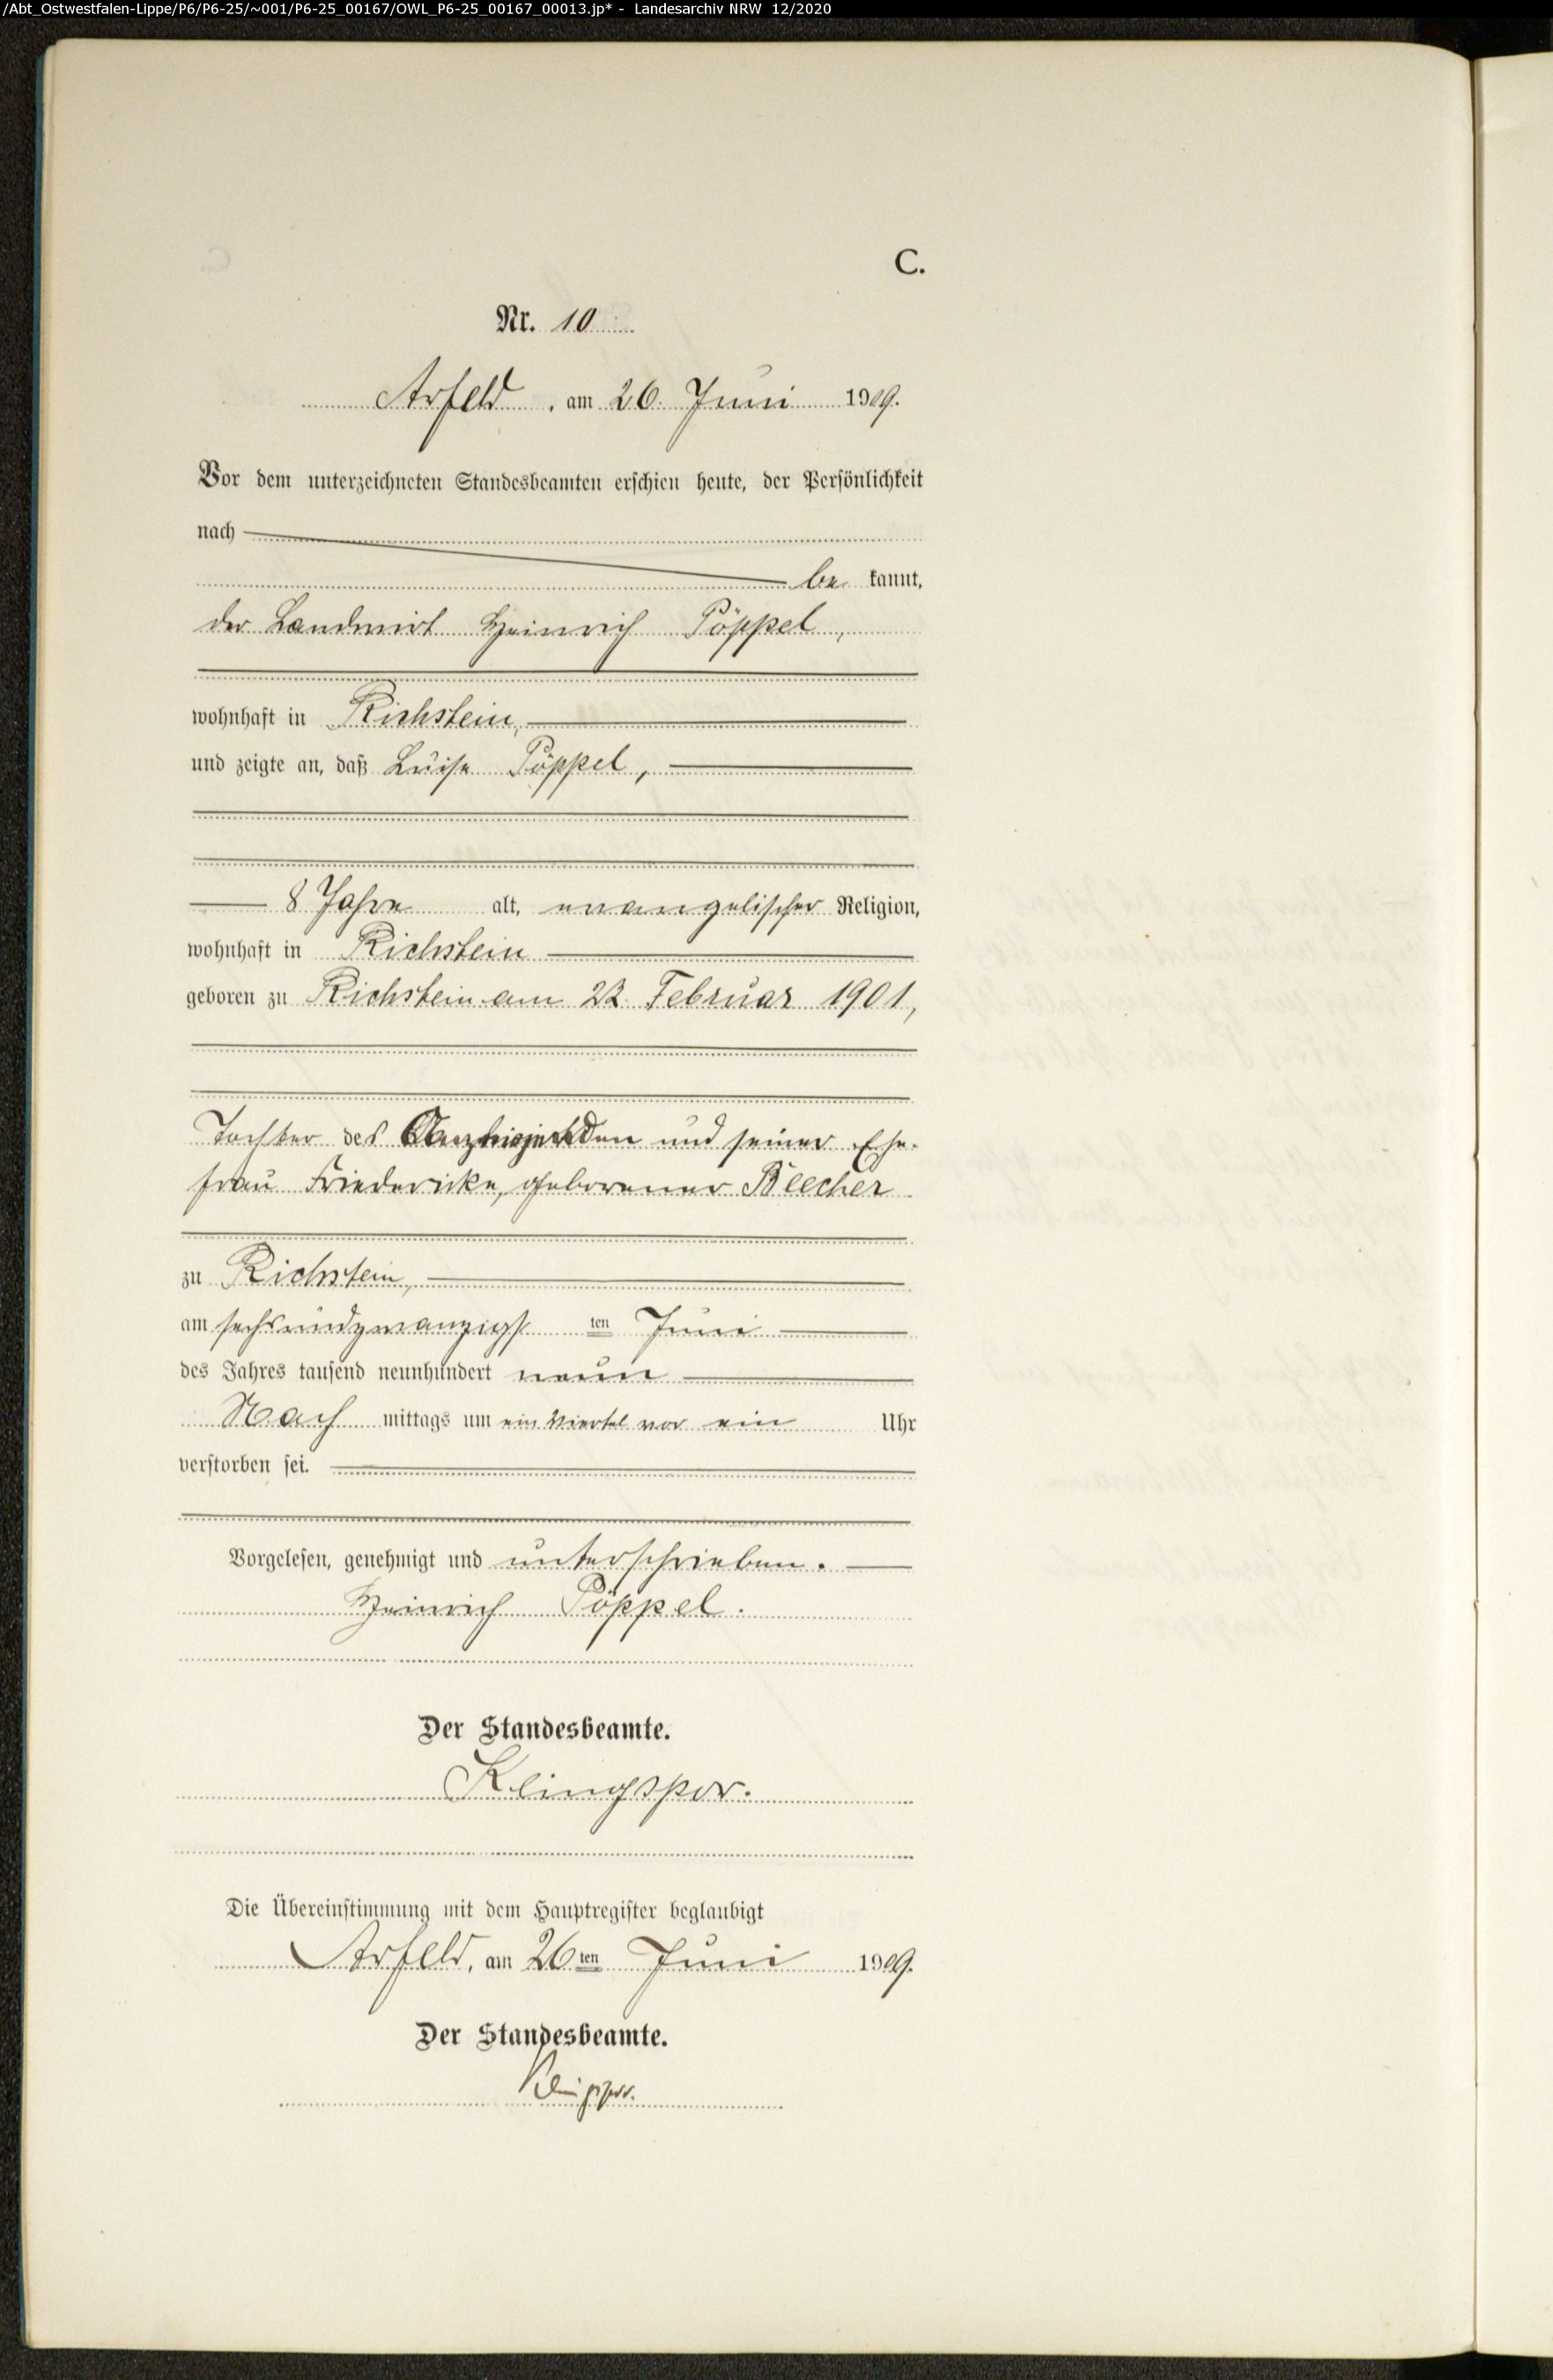 /Abt_Ostwestfalen-Lippe/P6/P6-25/~001/P6-25_00167/OWL_P6-25_00167_00013.jp* - Landesarchiv NRW 12/2020
C.
Nr. 10
Arfeld, am 26. Juni 1909.
Vor dem unterzeichneten Standesbeamten erschien heute, der Persönlichkeit
nach
be kannt,
der Landwirt Heinrich Pöppel,
wohnhaft in Richstein,
und zeigte an, daß Luise Pöppel,
8 Jahre alt, evangelischer Religion,
wohnhaft in Richstein
geboren zu Richstein am 22. Februar 1901,
Tochter des Anzeigenden und seiner Ehe-
frau Friedericke, geborener Beecher
zu Richstein,
am sechsundzwanzigs ten Juni
des Jahres tausend neunhundert neun
Nach mittags um ein Viertel vor ein Uhr
verstorben sei.
Vorgelesen, genehmigt und unterschrieben.
Heinrich Pöppel.
Der Standesbeamte.
Klingspor.
Die Übereinstimmung mit dem Hauptregister beglaubigt
Arfeld, am 26ten Juni 1909.
Der Standesbeamte.
Klingspor.